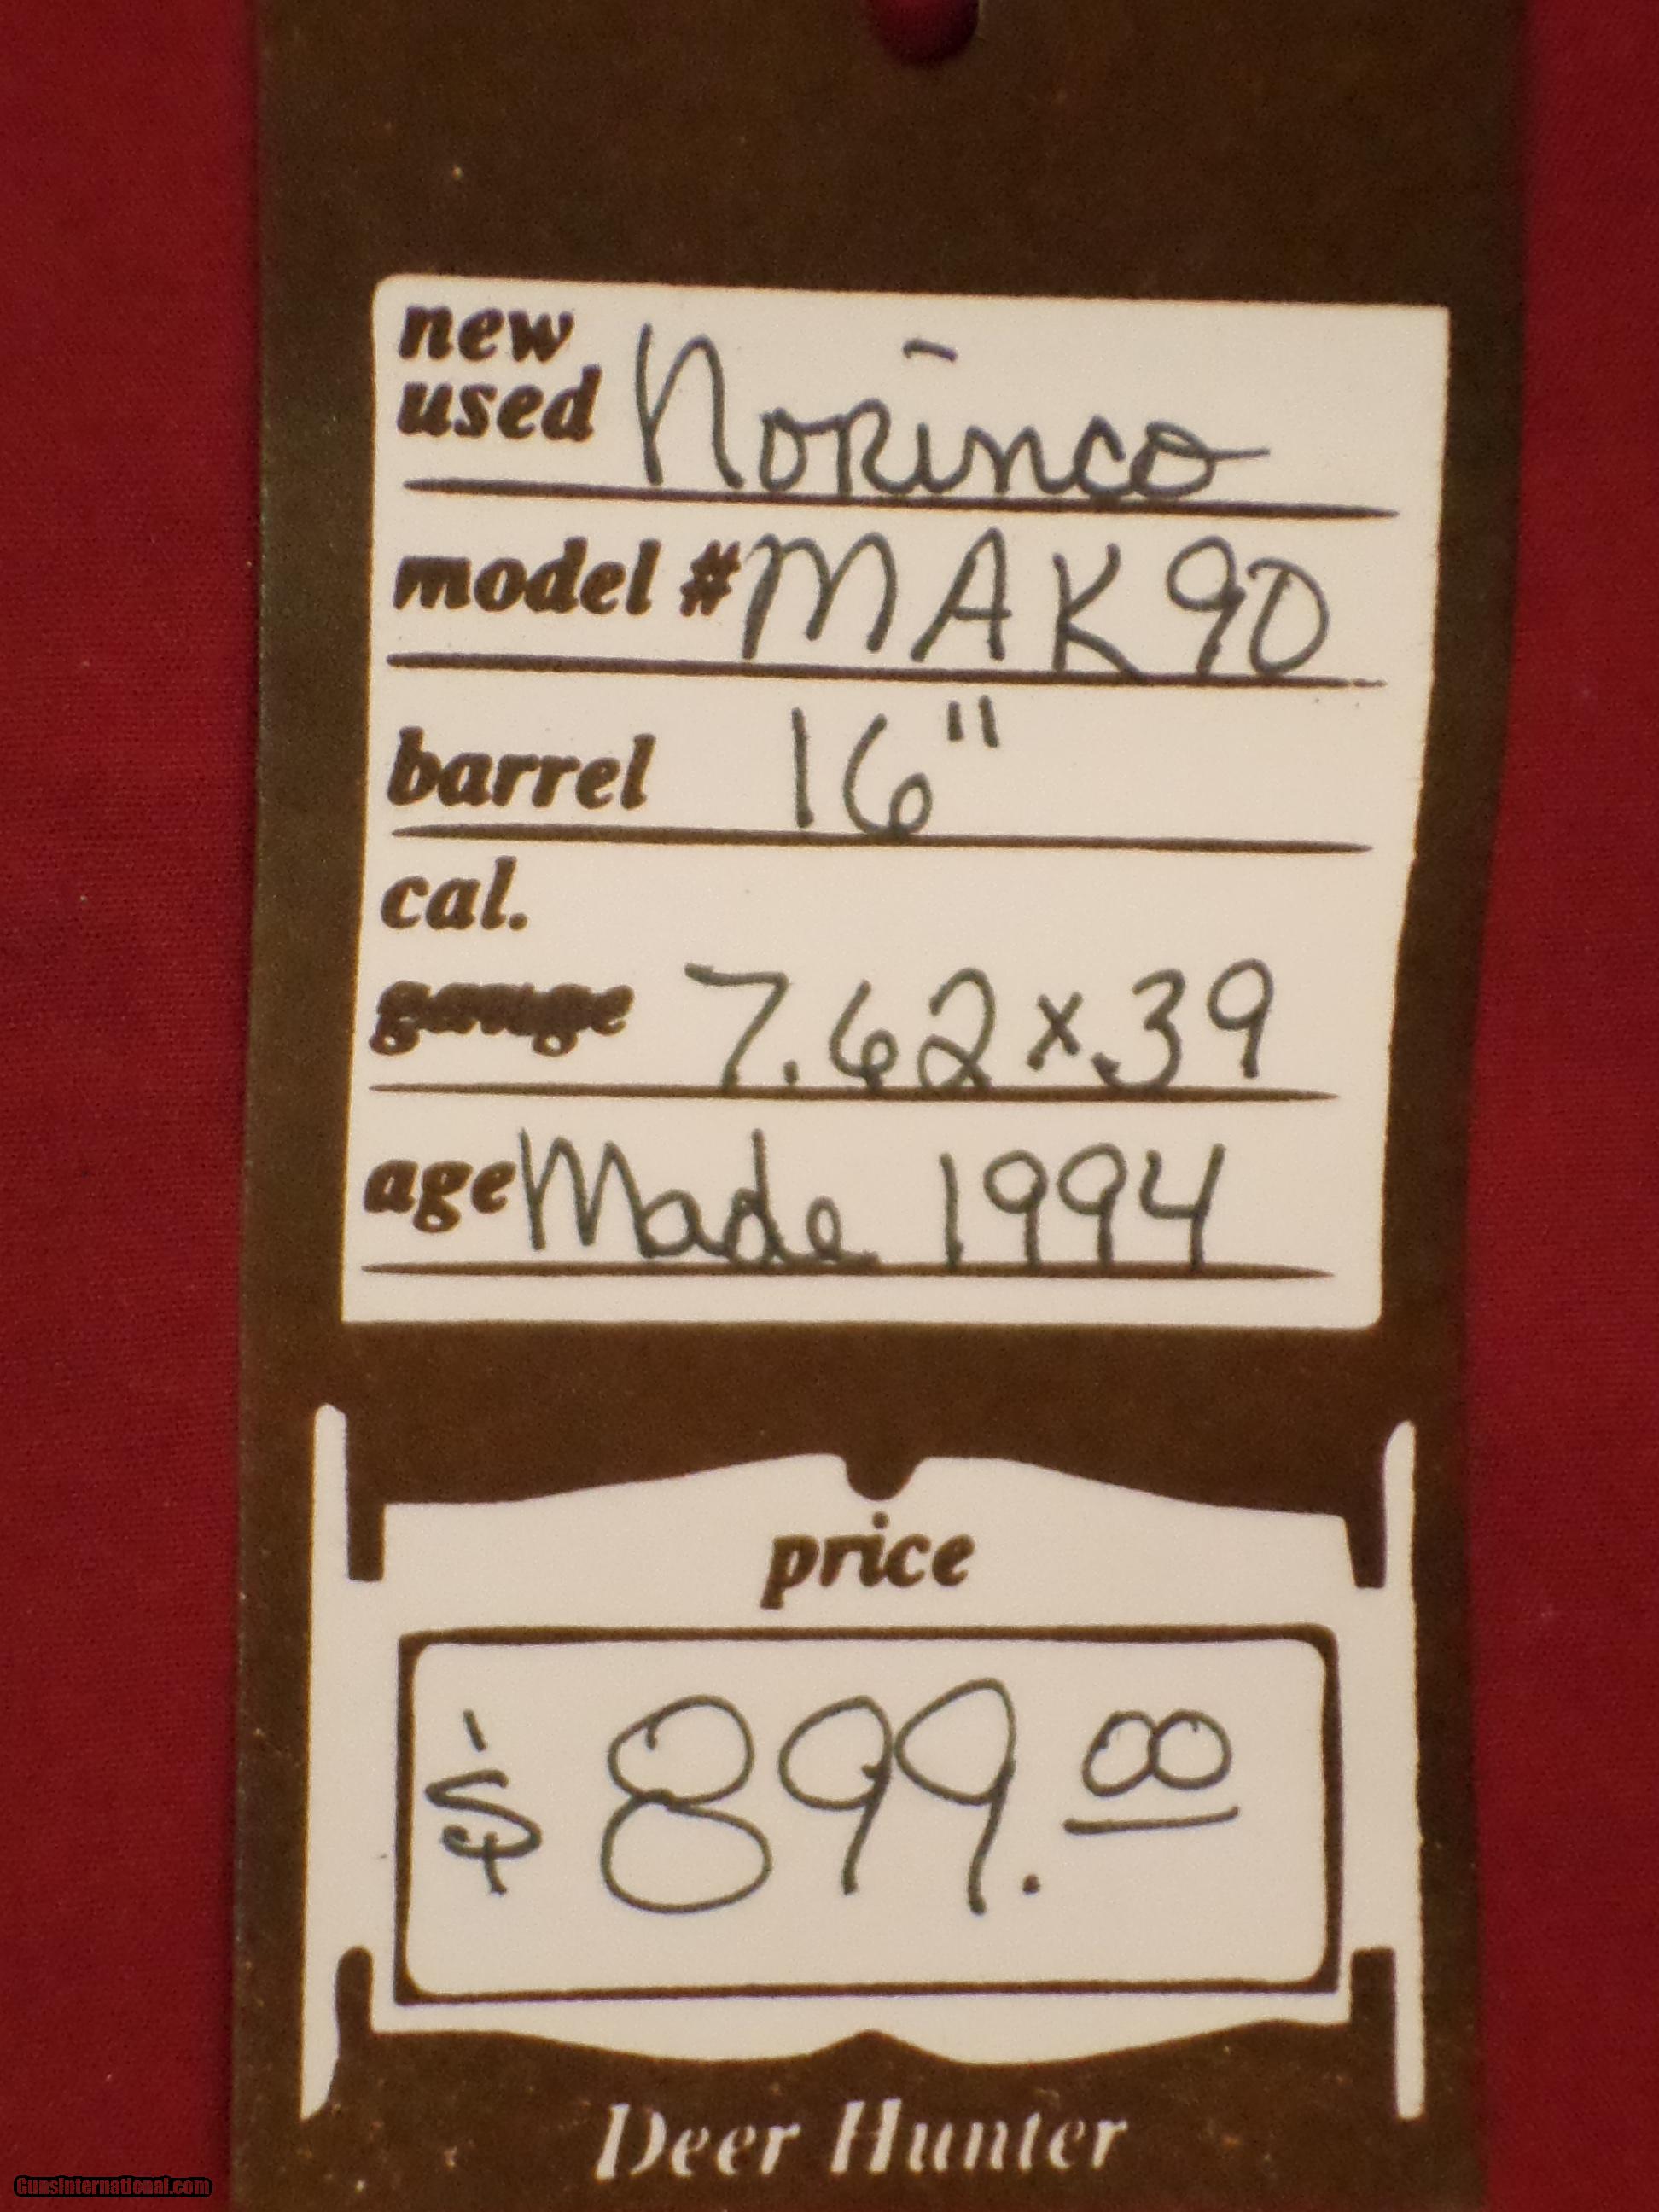 new
used Norinco
model # MAK90
barrel 16"
cal.
gauge 7.62x.39
age Made 1994
price
$ 899.00
Deer Hunter
GunsInternational.com